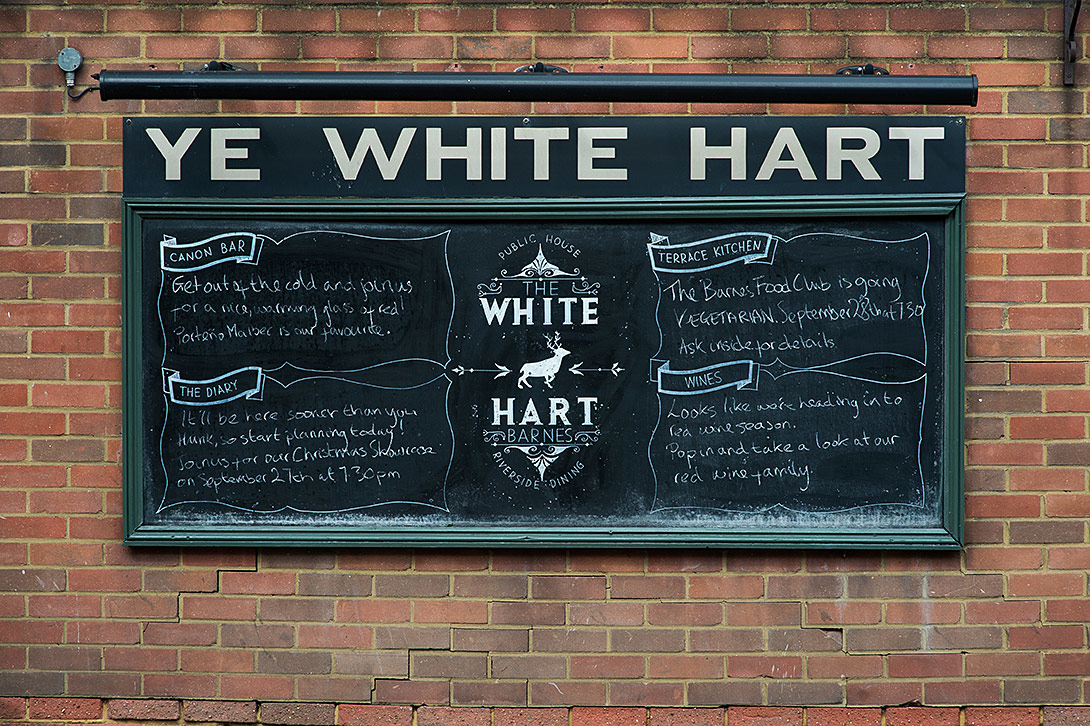 YE WHITE HART
CANON BAR
Get out of the cold and join us
for a nice, warming glass of red!
Porteño Malbec is our favourite.
THE DIARY
It'll be here sooner than you
think, so start planning today!
Join us for our Christmas Showcase
on September 27th at 7.30pm
PUBLIC HOUSE
THE
WHITE
HART
BARNES
RIVERSIDE · DINING
TERRACE KITCHEN
The Barnes Food Club is going
VEGETARIAN. September 28th at 7.30
Ask inside for details.
WINES
Looks like we're heading in to
red wine season.
Pop in and take a look at our
red wine family.